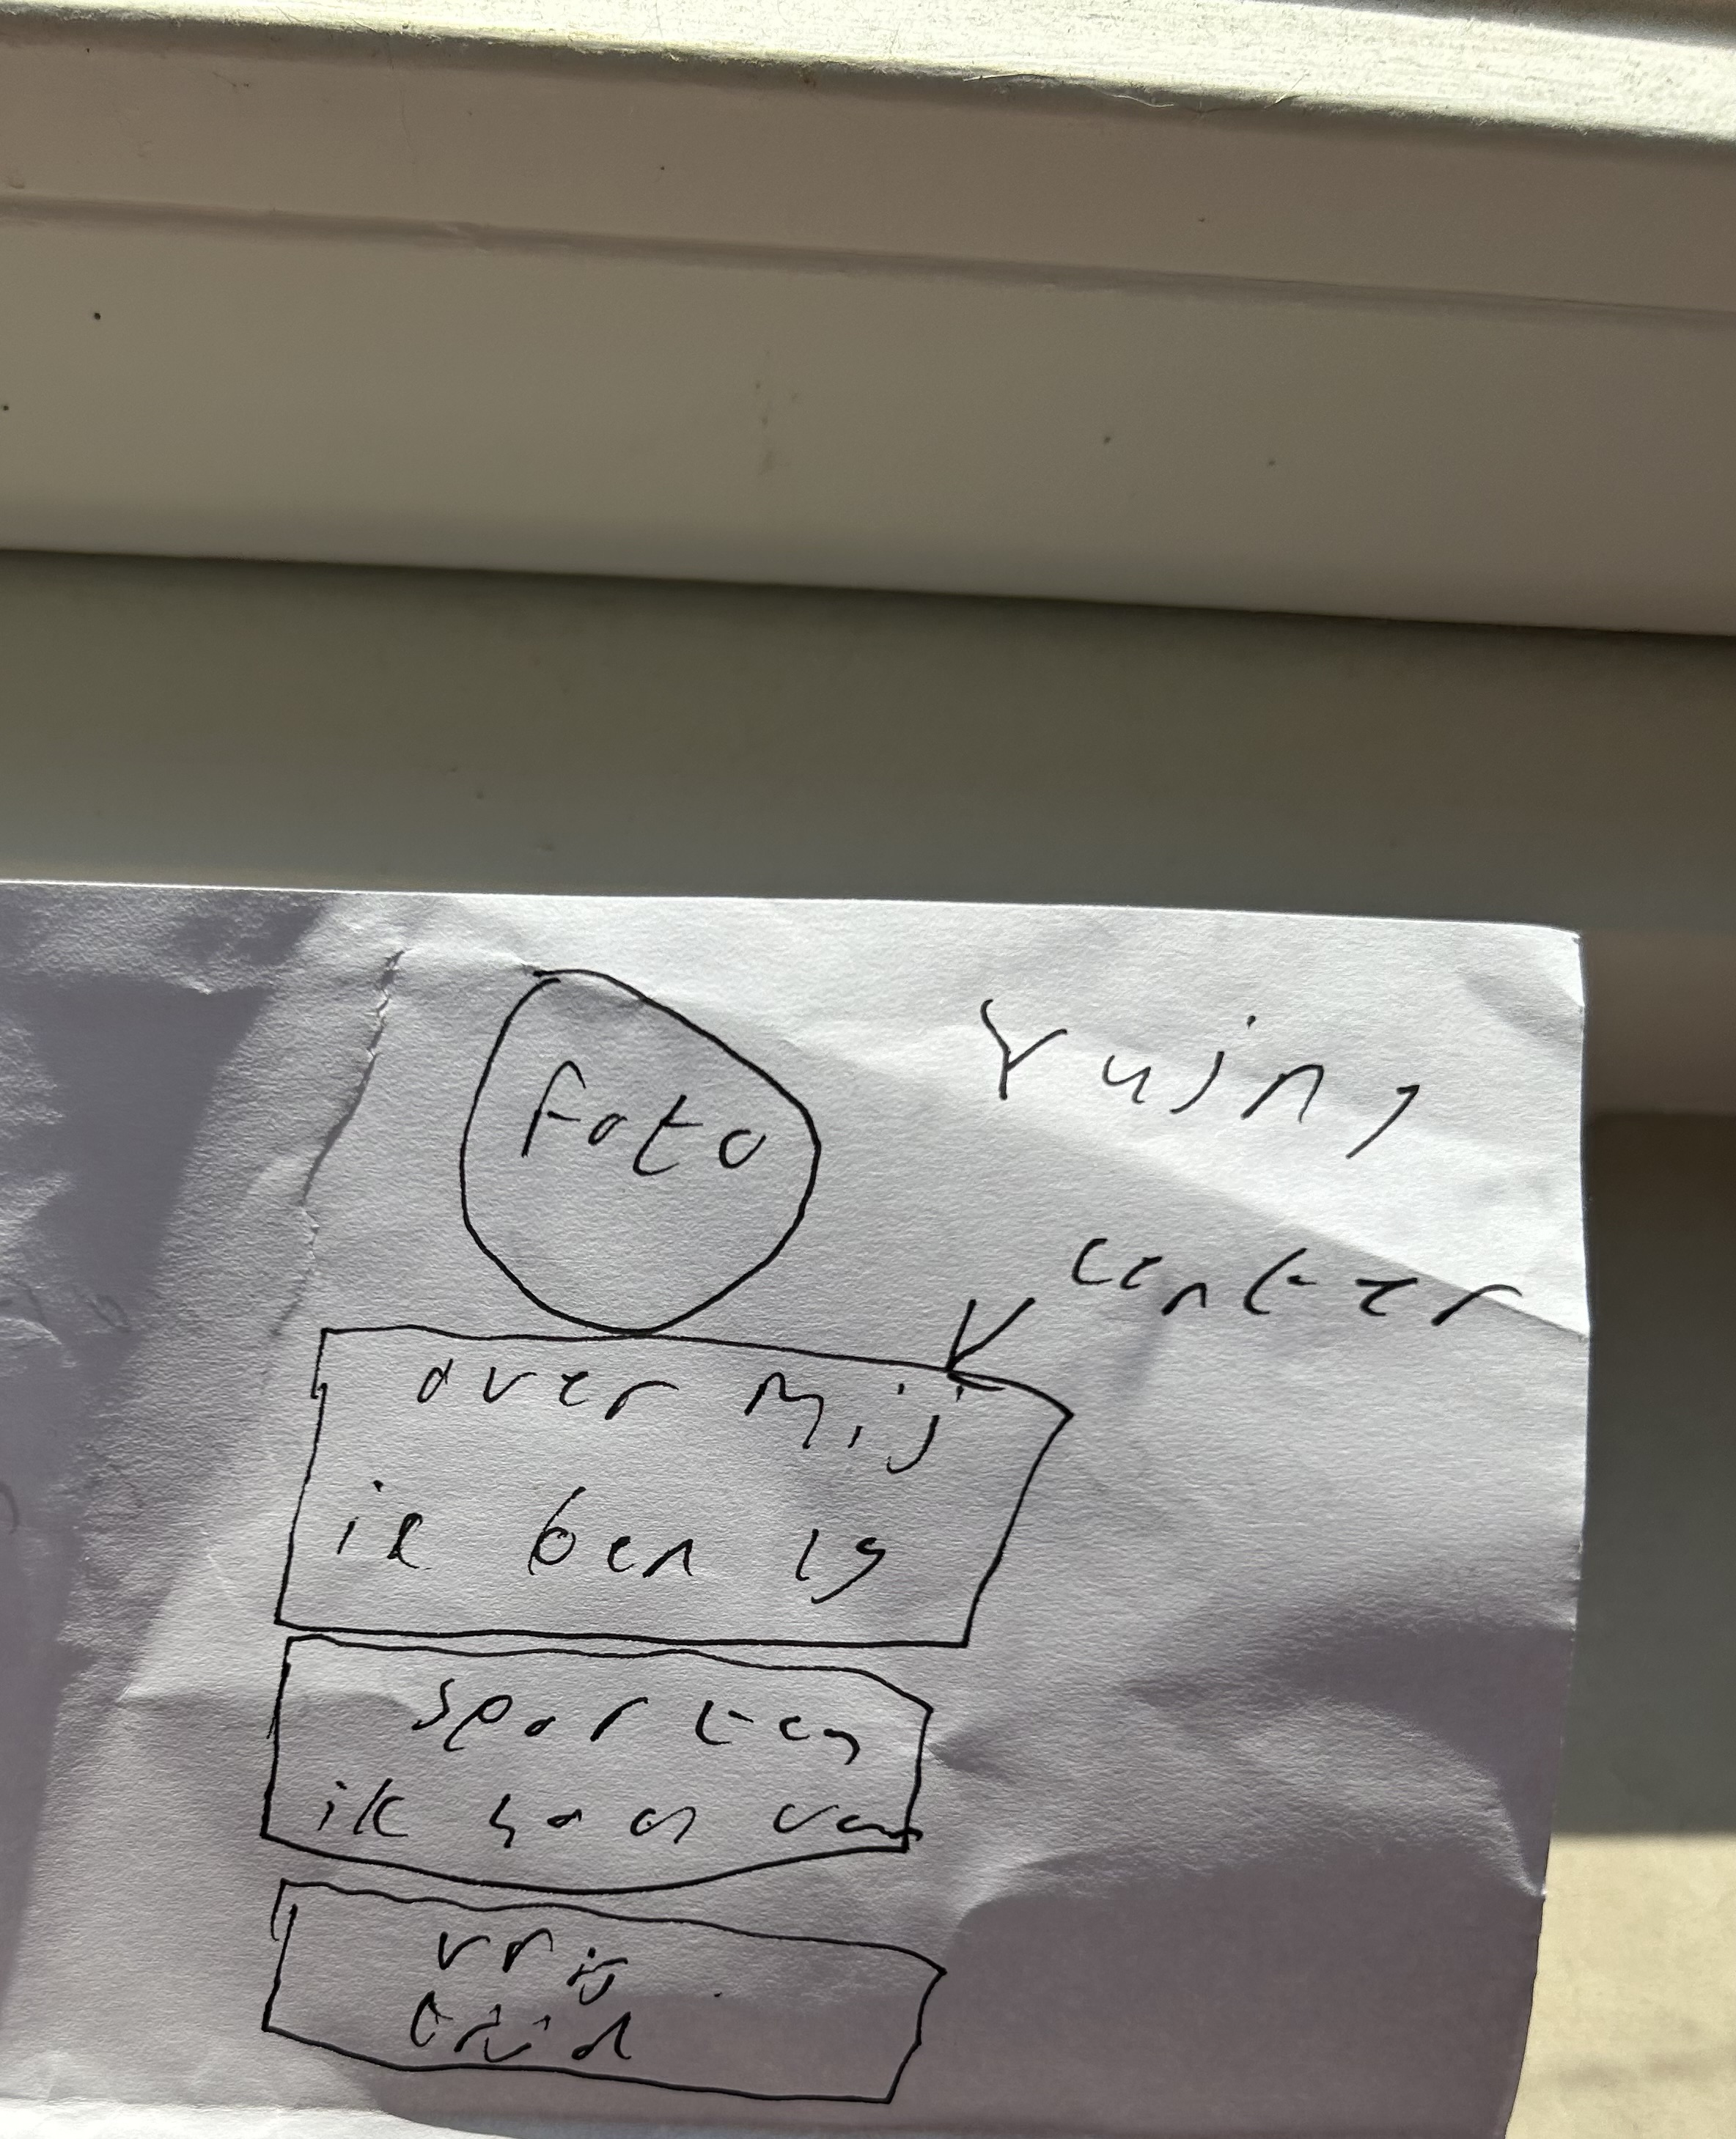 foto
Yujng
center
over mij
ik ben 19
sporten
ik hou van
vrij